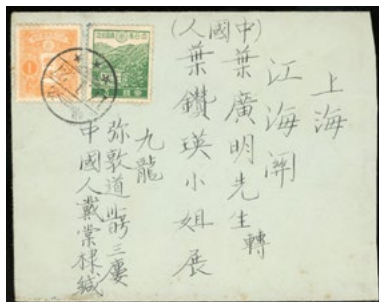 上海
江海關
(中國人)
葉廣明先生轉
葉鑽瑛小姐展
九龍
彌敦道 三廔
中國人戴棠棣緘